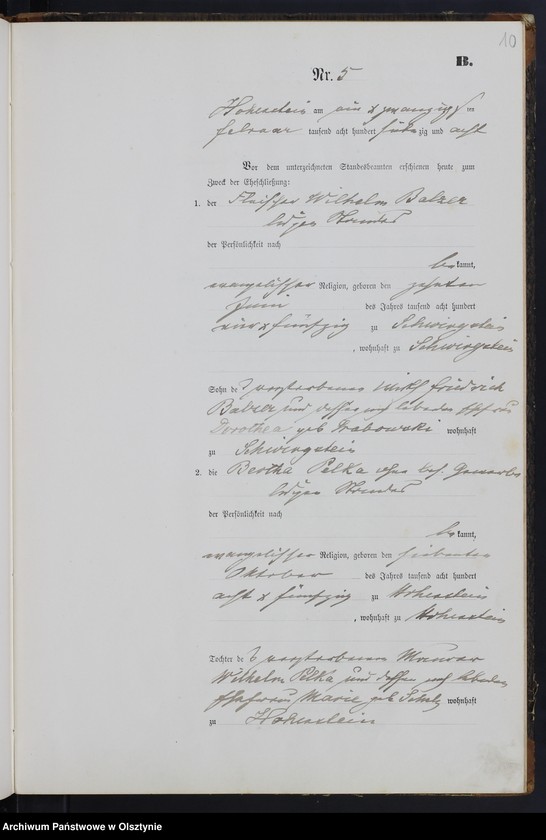 10
B.
Nr. 5
Hohenstein am ein & zwanzigsten
Februar tausend acht hundert siebenzig und acht
Vor dem unterzeichneten Standesbeamten erschienen heute zum
Zweck der Eheschließung:
1. der Fleischer Wilhelm Balzer
ledigen Standes
der Persönlichkeit nach
bekannt,
evangelischer Religion, geboren den zehnten
Juni des Jahres tausend acht hundert
& fünfzig zu Schwirgstein
, wohnhaft zu Schwirgstein
Sohn des verstorbenen Friedrich
Balzer und dessen noch lebenden Ehefrau
Dorothea geb Grabowski wohnhaft
zu Schwirgstein
2. die Bertha Pelka ohne bes. Gewerbe
ledigen Standes
der Persönlichkeit nach
bekannt,
evangelischer Religion, geboren den siebenten
Oktober des Jahres tausend acht hundert
acht & fünfzig zu Hohenstein
, wohnhaft zu Hohenstein
Tochter des verstorbenen Maurer
Wilhelm Pelka und dessen noch lebenden
Ehefrau Marie geb Schulz wohnhaft
zu Hohenstein
Archiwum Państwowe w Olsztynie